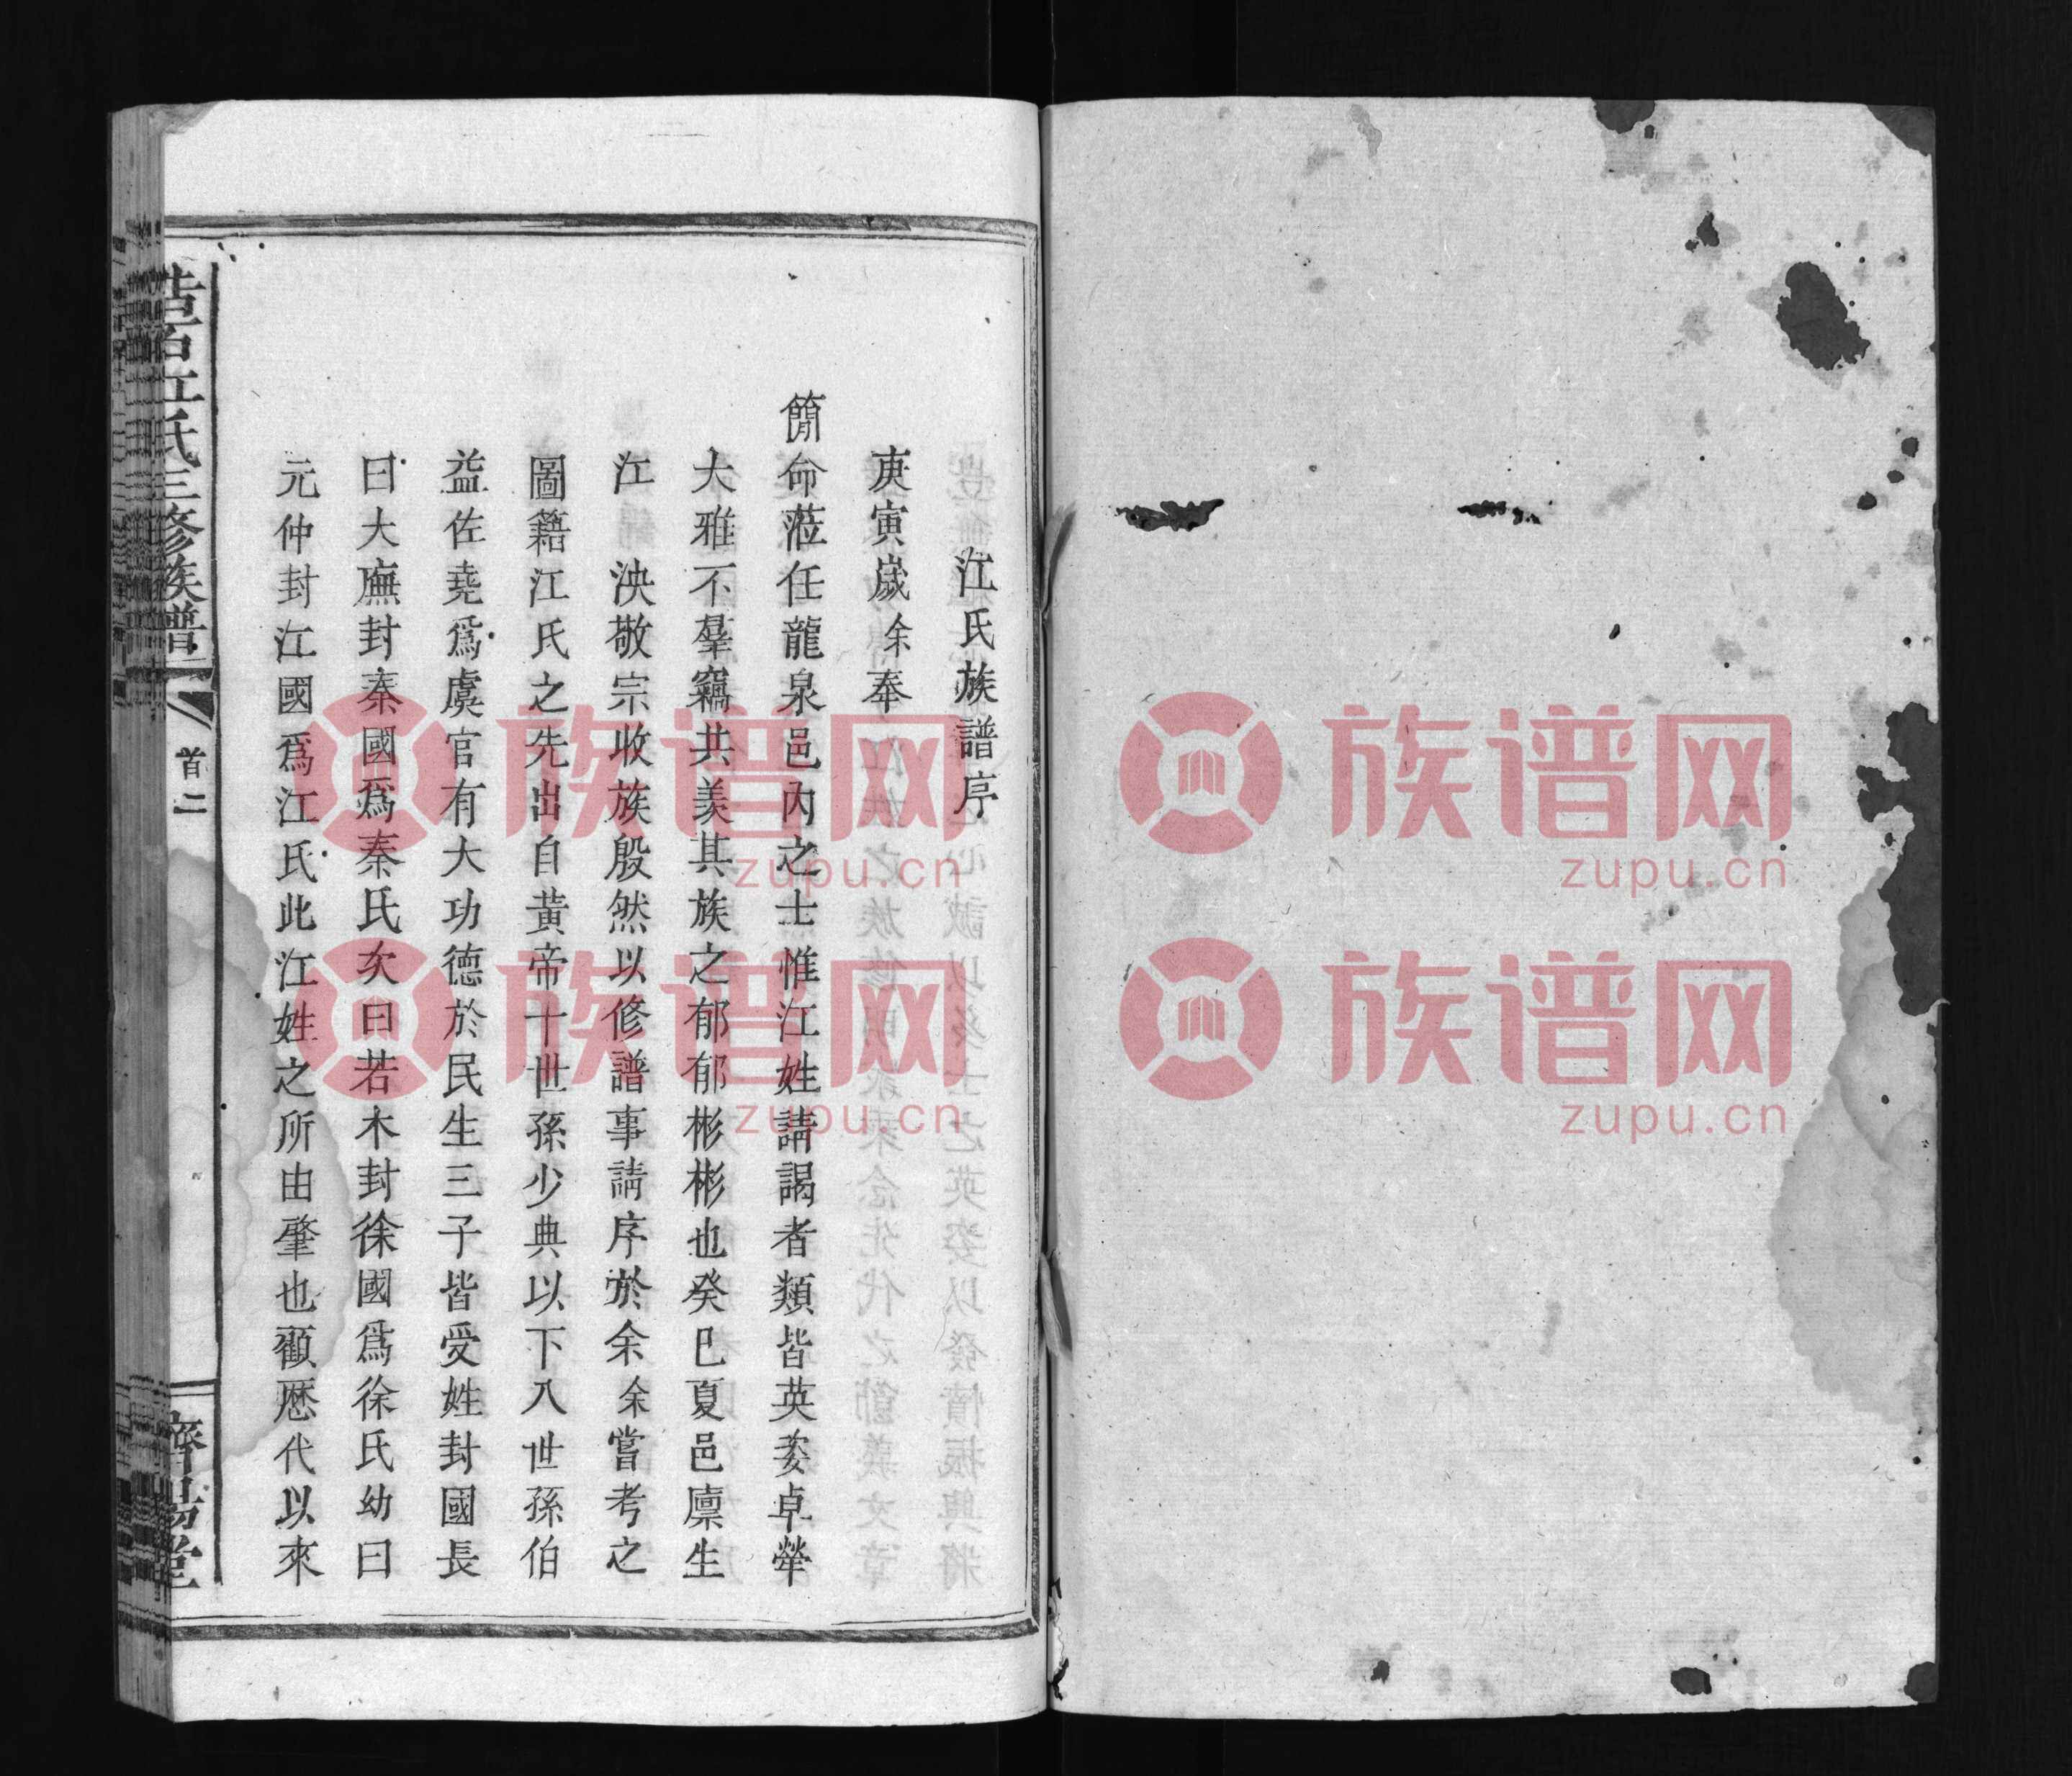 江氏族譜序
庚寅歲余奉
簡命蒞任龍泉邑內之士惟江姓請謁者類皆英姿卓犖
大雅不羣竊共羨其族之郁郁彬彬也癸巳夏邑廩生
江 泱敬宗收族殷然以修譜事請序於余余嘗考之
圖籍江氏之先出自黃帝十世孫少典以下八世孫伯
益佐堯爲虞官有大功德於民生三子皆受姓封國長
曰大廡封秦國爲秦氏次曰若木封徐國爲徐氏幼曰
元仲封江國爲江氏此江姓之所由肇也顧歷代以來
江氏三修族譜
首二
濟陽堂
族谱网
zupu.cn
族谱网
zupu.cn
族谱网
zupu.cn
族谱网
zupu.cn